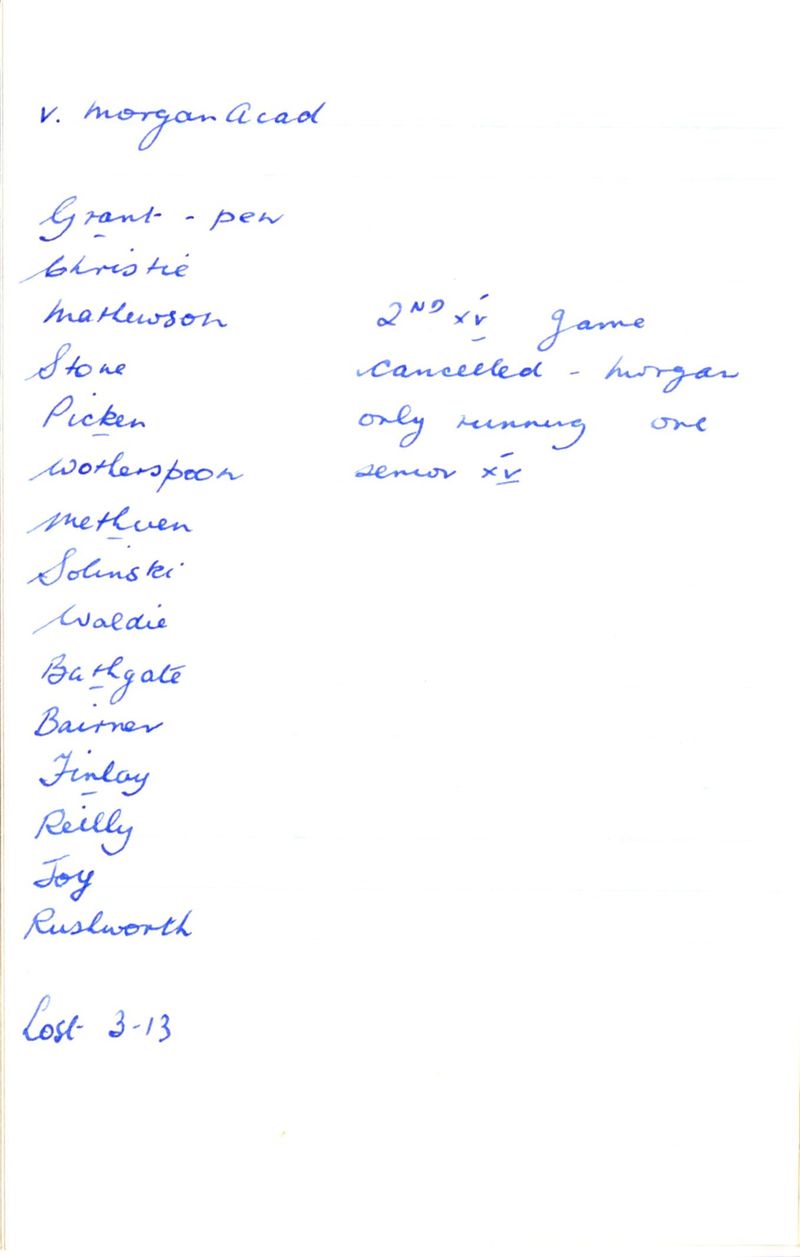 v. Morgan Acad
Grant - pen
Christie
Mathewson
Stone
Picken
Wotherspoon
Methven
Solinski
Waldie
Bathgate
Bairner
Finlay
Reilly
Joy
Rushworth
Lost 3-13
2ND XV game
cancelled - Morgan
only running one
senior XV